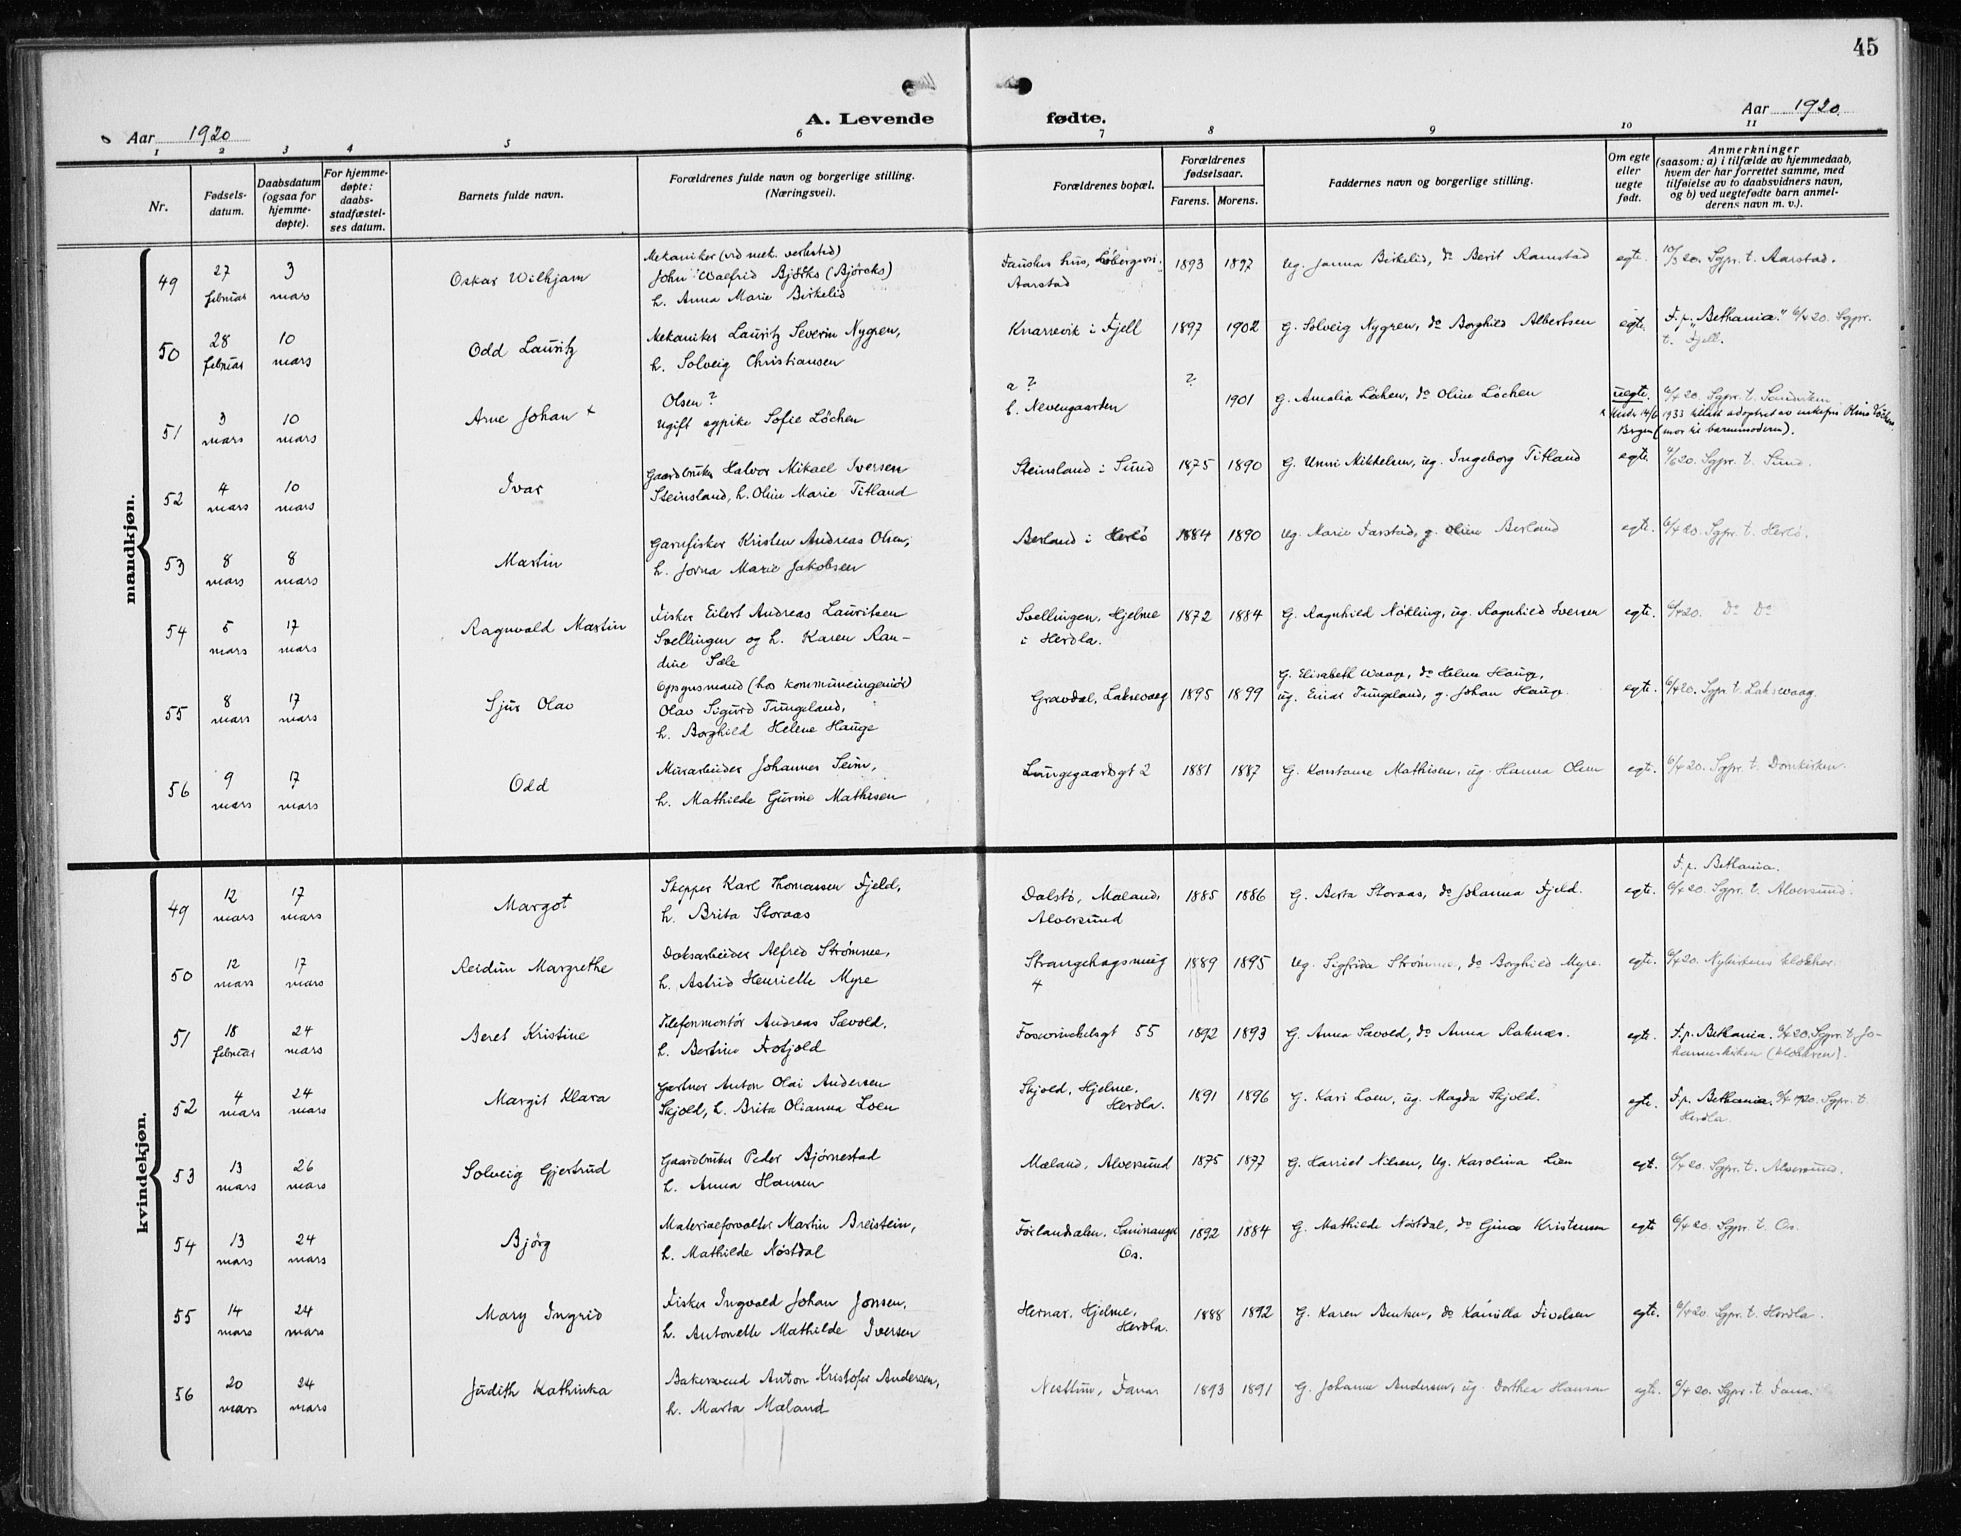 45
Aar 1920
A. Levende
fødte.
Aar 1920.
1 2 3 4 5 6 7 8 9 10 11
Nr.
Fødsels-
datum.
Daabsdatum
(ogsaa for
hjemme-
døpte).
For hjemme-
døpte:
daabs-
stadfæstel-
ses datum.
Barnets fulde navn.
Forældrenes fulde navn og borgerlige stilling.
(Næringsvei).
Forældrenes bopæl.
Forældrenes
fødselsaar.
Farens. Morens.
Faddernes navn og borgerlige stilling.
Om egte
eller
uegte
født.
Anmerkninger
(saasom: a) i tilfælde av hjemmedaab,
hvem der har forrettet samme, med
tilføielse av to daabsvidners navn,
og b) ved uegtefødte barn anmel-
derens navn m. v.).
mandkjøn.
49 27 februar 3 mars Oskar Wilhjam
Mekaniker (ved mek. verksted)
John Walfrid Björks (Björcks)
h. Anna Marie Birkelid
Aarstad
1893 1897 Ug. Janna Birkelid, do Berit Ramstad egte. 10/3 20. Sgpr. t. Aarstad.
50 28 februar 10 mars Odd Lauritz
Mekaniker Lauritz Severin Nygren,
h. Solveig Christiansen
Knarrevik i Fjell 1897 1902 G. Solveig Nygren, do Borghild Albertsen egte. F. p. "Bethania." 6/4 20. Sgpr.
t. Fjell.
51 3 mars 10 mars Arne Johan x
Olsen?
Ugift sypike Sofie Löchen
a ?
h. Nevengaarden
? 1901 G. Amalia Löchen, do Oline Löchen uegte. 6/4 20 Sgpr. t. Sandviken
1933 adoptert av enkefru Oline Löchen,
Bergen (mor til barnemoderen).
52 4 mars 10 mars Ivar
Gaardbruker Halvor Mikael Iversen
Steinsland, h. Oline Marie Titland
Steinsland i Sund 1875 1890 G. Unni Mikkelsen, ug. Ingeborg Titland egte. 4/6 20. Sgpr. t. Sund.
53 8 mars 8 mars Martin
Garnfisker Kristen Andreas Olsen,
h. Jorna Marie Jakobsen
Berland i Herlö 1884 1890 Ug. Marie Farstad, g. Oline Berland egte. 6/4 20. Sgpr. t. Herlö.
54 5 mars 17 mars Ragnvald Martin
Fisker Eilert Andreas Lauritsen
Svellingen og h. Karen Ran-
dine Sæle
Svellingen, Hjelme
i Herdla.
1872 1884 G. Ragnhild Nökling, ug. Ragnhild Iversen egte. 6/4 20. do do
55 8 mars 17 mars Sjur Olav
Opsynsmand (hos kommuneingeniör)
Olav Sigurd Tungeland,
h. Borghild Helene Hauge
Gravdal, Laksevaag 1895 1899
G. Elisabeth Waage, do Helene Hauge,
ug. Einar Tungeland, g. Johan Hauge.
egte. 6/4 20. Sgpr. t. Laksevaag.
56 9 mars 17 mars Odd
Murarbeider Johannes Seim,
h. Mathilde Gurine Mathisen
Lungegaardsgt 2 1881 1887 G. Konstanse Mathisen, ug. Hanna Olsen egte. 6/4 20. Sgpr. t. Domkirken.
kvindekjøn.
49 12 mars 17 mars Margot
Skipper Karl Thomassen Fjeld,
h. Brita Storaas
Dalstö, Mæland,
Alversund
1885 1886 G. Berta Storaas, do Johanna Fjeld. egte.
F. p. Bethania.
6/4 20. Sgpr. t. Alversund.
50 12 mars 17 mars Reidun Margrethe
Doksarbeider Alfred Strømme,
h. Astrid Henriette Myre
Strangehagsmug
4
1889 1895 Ug. Sigfrida Strømme, do Borghild Myre. egte. 6/4 20. Nykirkens klokker.
51 18 februar 24 mars Beret Kristine
Telefonmontör Andreas Sævold,
h. Bertine Fotjold
Fosswinckelsgt 55 1892 1893 G. Anna Sævold, do Anna Raknæs. egte. F. p. Bethania. 6/4 20. Sgpr. t. Jo-
hanneskirken (klokkeren).
52 4 mars 24 mars Margit Klara
Gartner Anton Olai Andersen
Skjold, h. Brita Olianna Loen
Skjold, Hjelme,
Herdla.
1891 1896 G. Kari Loen, ug. Magda Skjold. egte. F. p. Bethania. 6/4 1920. Sgpr. t.
Herdla.
53 13 mars 26 mars Solveig Gjertrud
Gaardbruker Peder Bjørnestad
h. Anna Hansen
Mæland, Alversund 1875 1877 G. Harriet Nilsen, ug. Karolina Lien egt. 6/4 20. Sgpr. t. Alversund.
54 13 mars 24 mars Bjørg
Materialforvalter Martin Breistein,
h. Mathilde Nöstdal
Samnanger
Os.
1892 1884 G. Mathilde Nöstdal, do Gina Kristensen egte 6/4 20. Sgpr. t. Os.
55 14 mars 24 mars Mary Ingrid
Fisker Ingvald Johan Jonsen,
h. Antonette Mathilde Iversen
Hernar, Hjelme,
Herdla.
1888 1892 G. Karen Bentsen, do Kamilla Fivelsen egte. 6/4 20. Sgpr. t. Herdla.
56 20 mars 24 mars Judith Kathinka
Bakersvend Anton Kristofer Andersen,
h. Marta Mæland
Nesttun, Fana 1893 1891 G. Johanne Andersen, ug. Dorthea Hansen egte. 6/4 20. Sgpr. t. Fana.